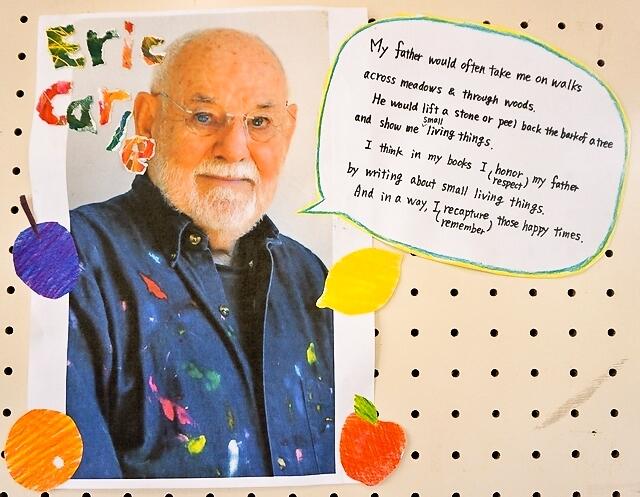 Eric
Carle
My father would often take me on walks
across meadows & through woods.
He would lift a stone or peel back the bark of a tree
and show me small living things.
I think in my books I honor (respect) my father
by writing about small living things.
And in a way, I recapture (remember) those happy times.